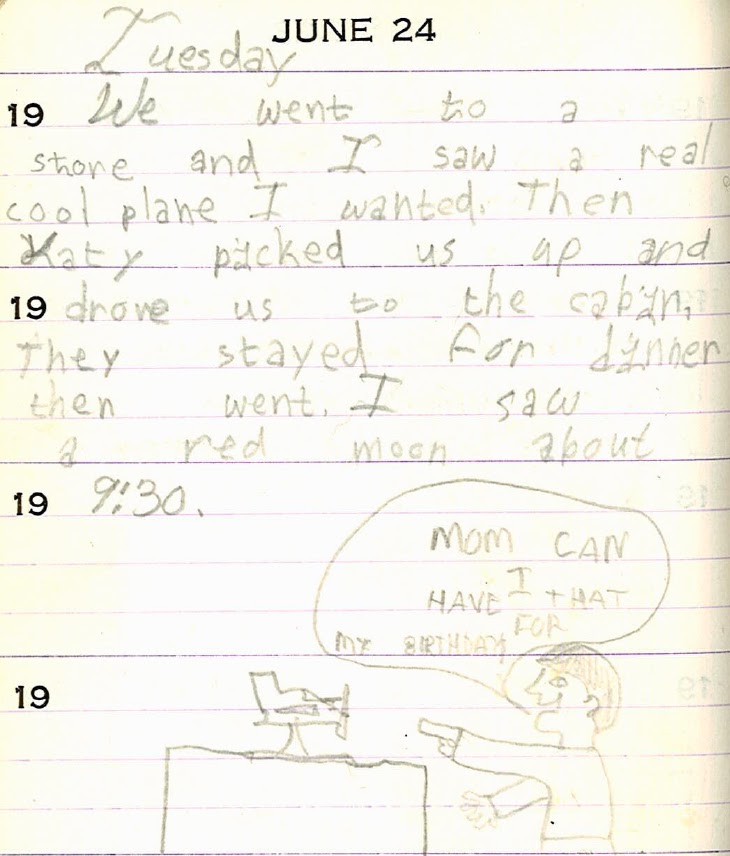 JUNE 24
Tuesday
19 We went to a
store and I saw a real
cool plane I wanted. Then
Katy picked us up and
19 drove us to the cabin.
They stayed for dinner
then went. I saw
a red moon about
19 9:30.
MOM CAN
I
HAVE THAT
FOR
MY BIRTHDAY
19